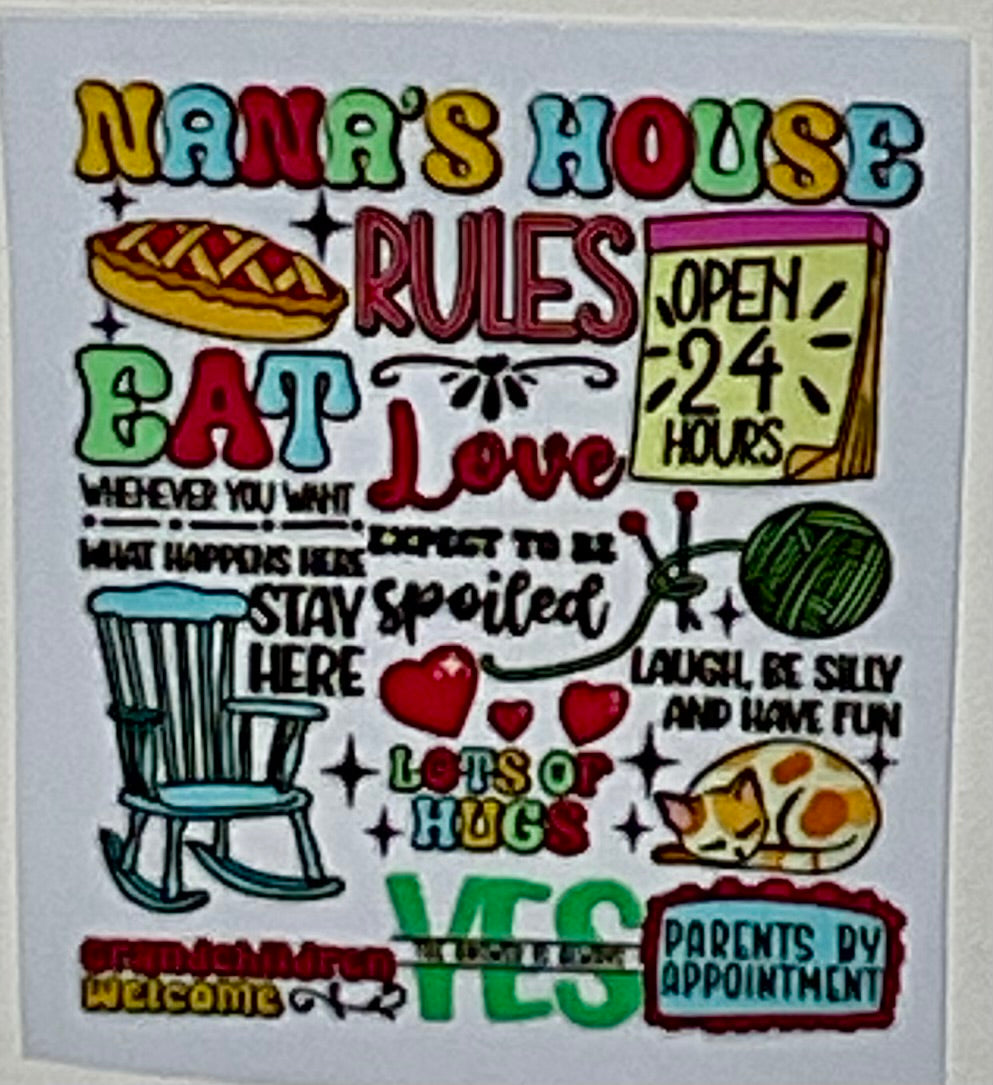 NANA'S HOUSE
RULES
OPEN
24
HOURS
EAT
WHENEVER YOU WANT
Love
WHAT HAPPENS HERE
STAY
HERE
EXPECT TO BE
spoiled
LAUGH, BE SILLY
AND HAVE FUN
LOTS OF
HUGS
grandchildren
welcome
THE ANSWER IS ALWAYS
YES
PARENTS BY
APPOINTMENT